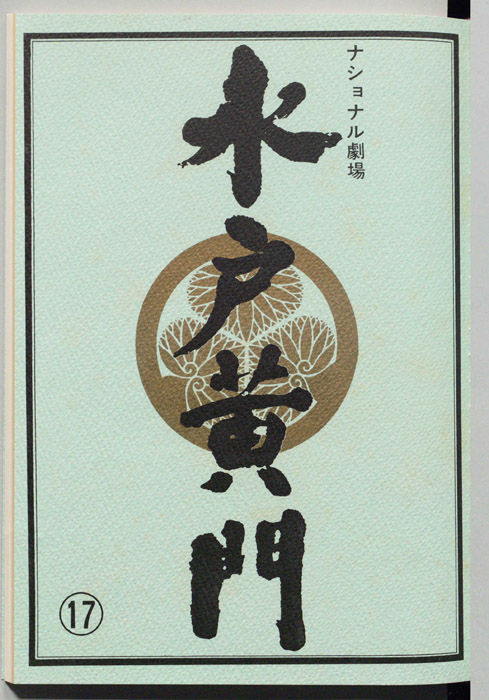 ナショナル劇場
水戸黄門
⑰